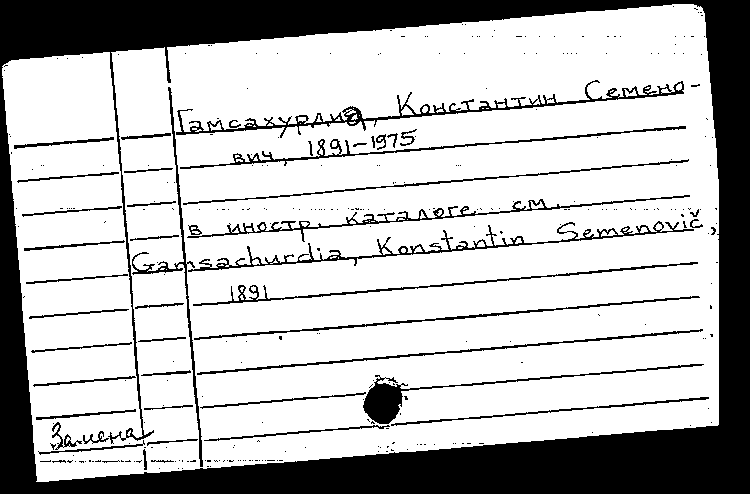 Гамсахурдиа, Константин Семено-
вич, 1891-1975
в иностр. каталоге см.
Gamsachurdia, Konstantin Semenovič,
1891
Замена